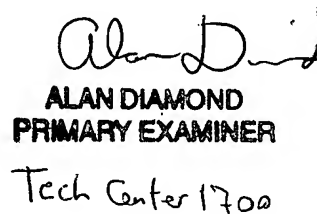 Alan Diamond
ALAN DIAMOND
PRIMARY EXAMINER
Tech Center 1700